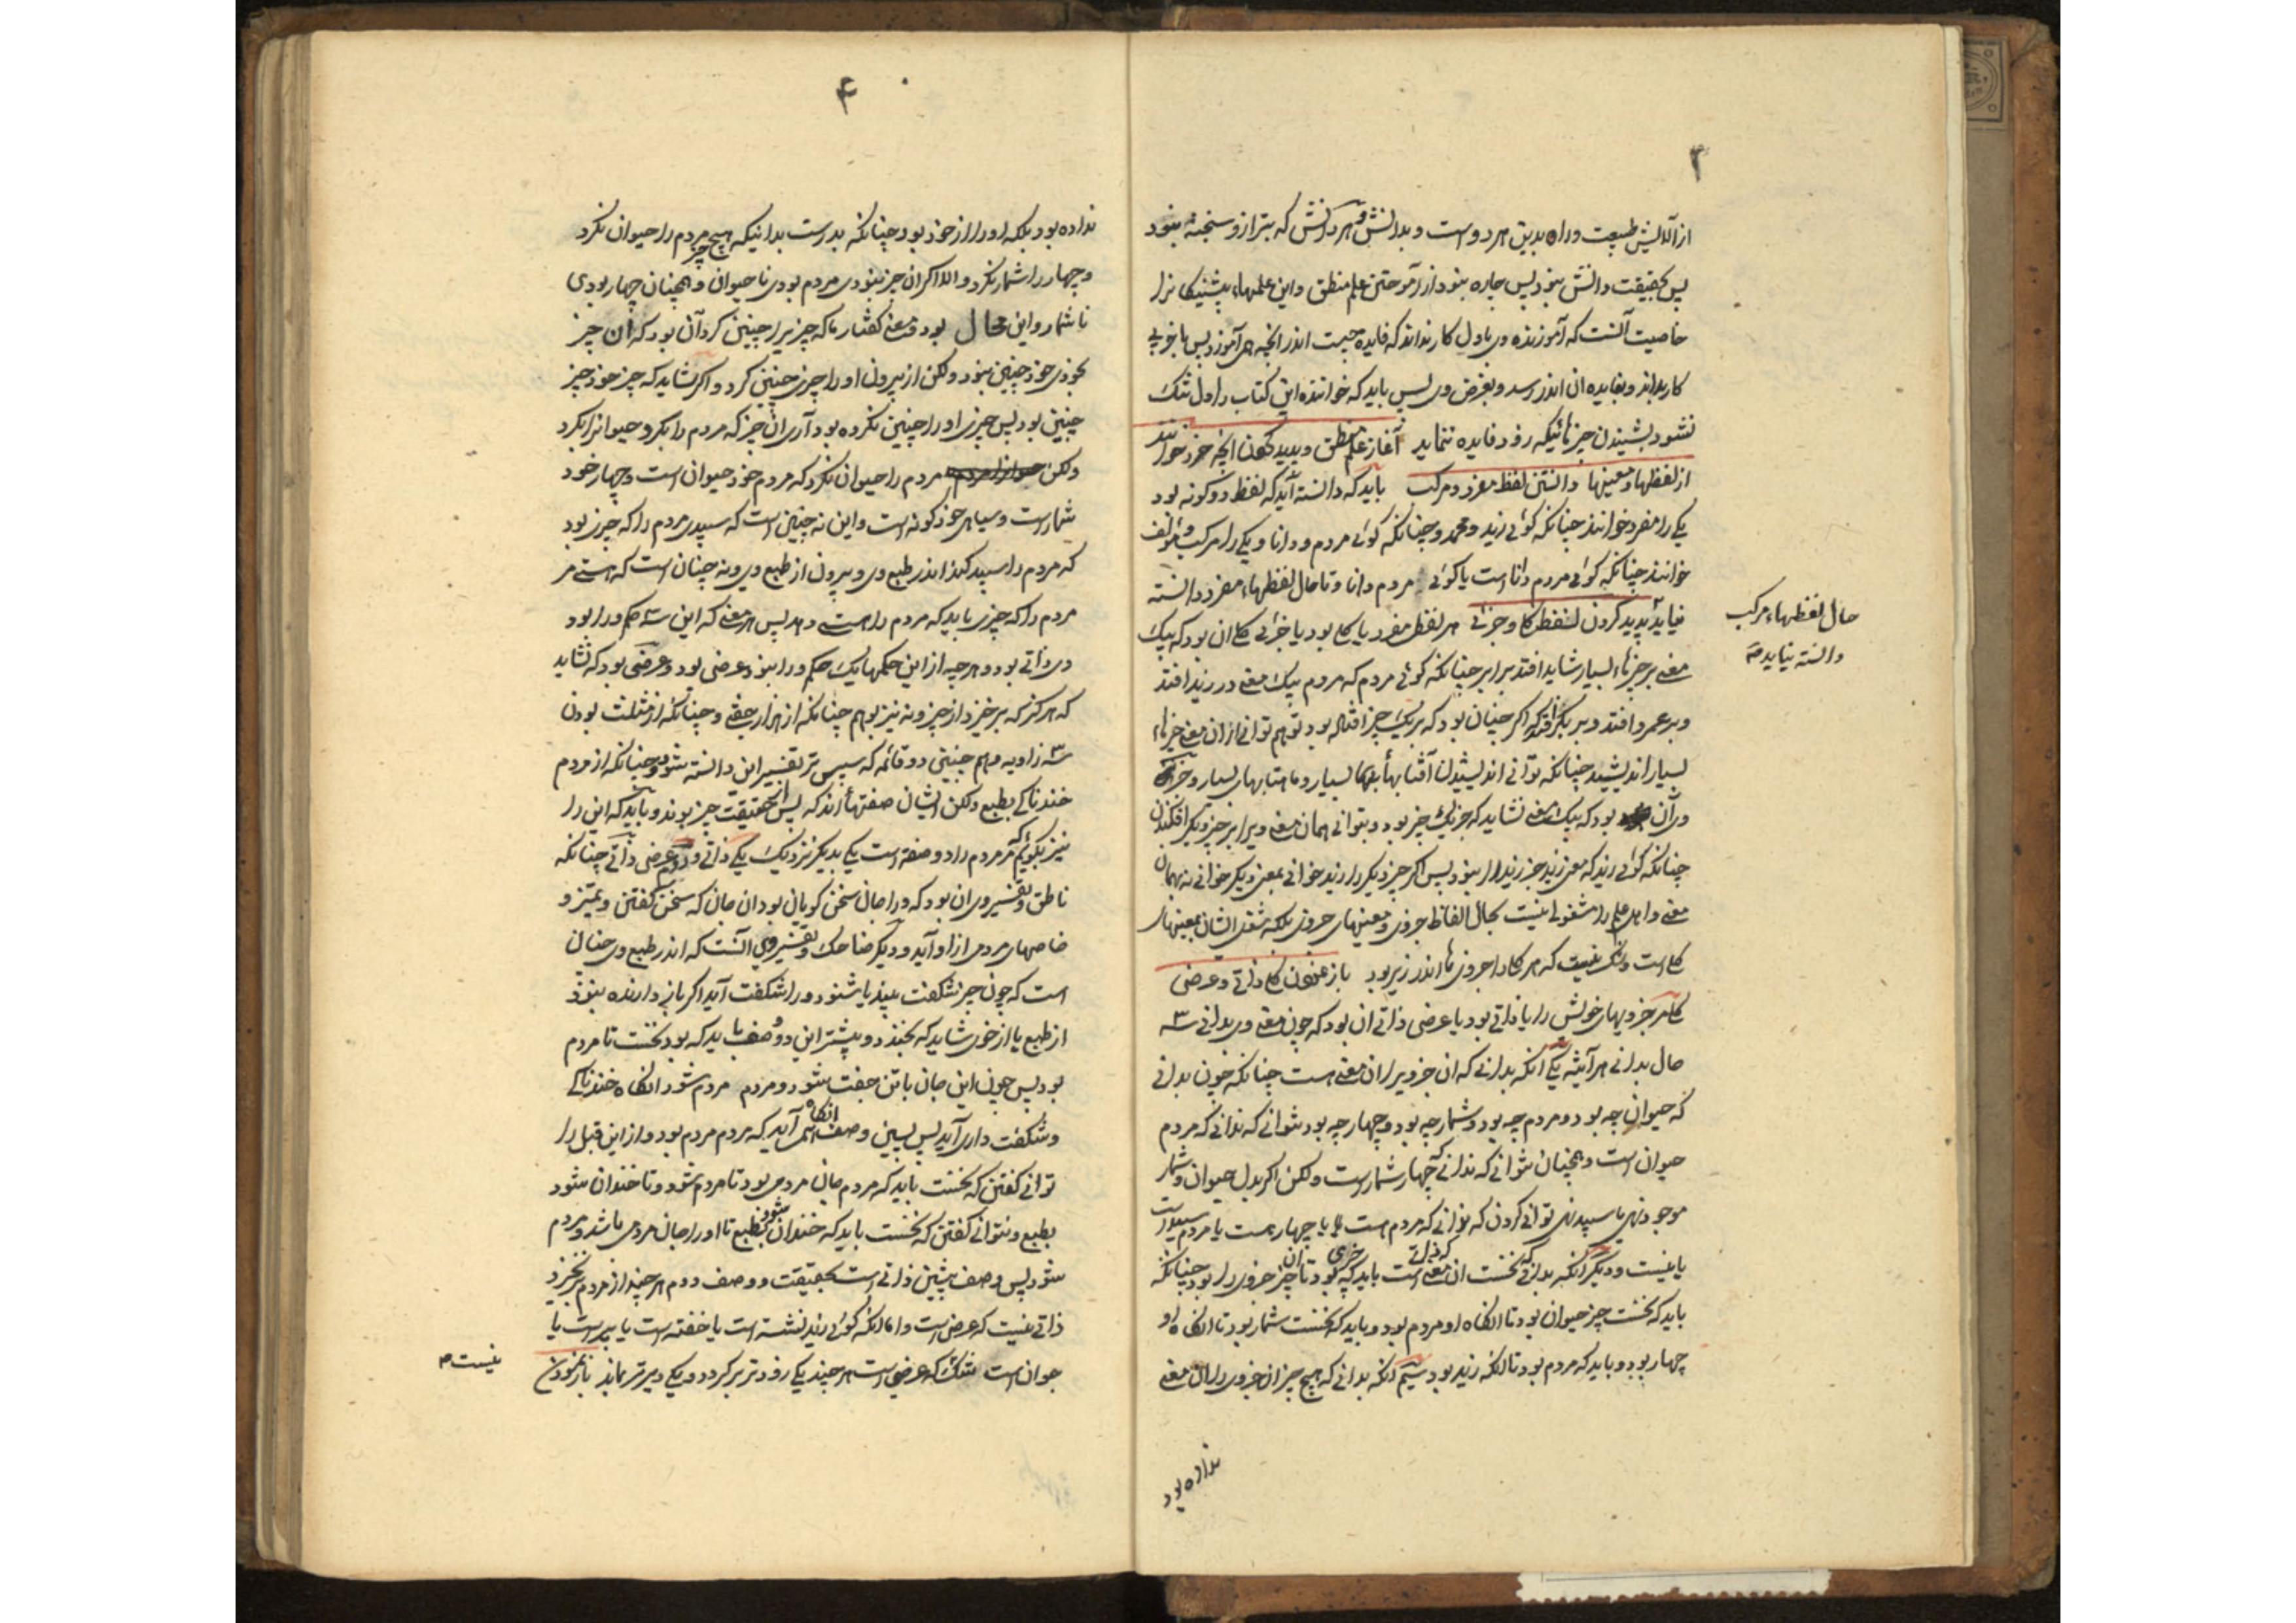 ۳
از آلایش طبیعت و راه بدین هر دو است و بدانش و هر دانش که بترازو سنجیده نبود
پس بحقیقت دانش نبود پس چاره نبود از آموختن علم منطق و این علمهاء پیشینکانرا
خاصیت آنست که آموزنده وی باول کار نداند که فایده چیست اندر انچه می آموزد پس باخر
کار بداند و بفایده ان اندر رسد و بغرض وی پس باید که خواننده این کتاب را دل تنک
نشود بشنیدن چیزهائیکه زود فایده ننماید آغاز علم منطق و پدید کردن انچه مفرد خوانند
از لفظها و معنیها دانستن لفظ مفرد و مرکب باید که دانسته آید که لفظ دو کونه بود
یکی را مفرد خوانند چنانکه کوئی زید و محمد و چنانکه کوئی مردم و دانا و یکی را مرکب و مؤلف
خوانند چنانکه کوئی مردم دانا است یا کوئی مردم دانا و تا حال لفظهاء مفرد دانسته
نیاید پدید کردن لفظ کلی و جزئی هر لفظی مفرد یا کلی بود یا جزئی کلی ان بود که بیک
معنی بر چیزهاء بسیار شاید افتد برابر چنانکه کوئی مردم که مردم بیک معنی در زید افتد
و بر عمرو افتد و بر بکر افتد و اکر چنان بود که بر یک چیز افتاده بود تو هم توانی از ان معنی چیزهاء
بسیار اندیشید چنانکه توانی اندیشیدن آفتابهاء بسیار و ماهتابهای بسیار و جزئی
ان بود که بیک معنی نشاید که جز یک چیز بود و نتوانی همان معنی ویرا بر چیز دیکر افکندن
چنانکه کوئی زید که معنی زید جز زید را نبود پس اکر چیز دیکر را زید خوانی بمعنی دیکر خوانی نه بهمان
معنی و اهل علم را مشغولی نیست بحال الفاظ جزوی و معنیهای جزوی بلکه شغل ایشان بمعنیهای
کلی است و شک نیست که هر کلی را جزویها اندر زیر بود باز نمودن کلی ذاتی و عرضی
کلی مر جزویهای خویش را یا ذاتی بود یا عرضی ذاتی ان بود که چون معنی وی بدانی سه
حال بدانی هرآینه یکی انکه بدانی که ان جزویرا ان معنی هست چنانکه چون بدانی
که حیوان چه بود و مردم چه بود و شمار چه بود و چهار چه بود نتوانی که ندانی که مردم
حیوان است و همچنان نتوانی که ندانی که چهار شمار است ولکن اکر بدل حیوان و شمار
موجود نهی یا سپید نهی توانی کردن که ندانی که مردم هست یا چهار هست یا مردم سپید است
یا نیست و دیکر انکه بدانی که نخست ان معنی ذاتی است باید که بود تا ان چیز جزوی را بود چنانکه
باید که نخست چیز حیوان بود تا انکاه او مردم بود و باید که نخست شمار بود تا انکاه او
چهار بود و باید که مردم بود تا انکه زید بود سیم انکه بدانی که هیچ چیز ان جزوی را ان معنی
نداده بود
حال لفظهاء مرکب
دانسته نیاید صح
۴
نداده بود بلکه او را از خود بود چنانکه بدرست بدانیکه هیچ چیز مردم را حیوان نکرد
و چهار را شمار نکرد و الا اکر ان چیز نبودی مردم بودی نا حیوان و همچنان چهار بودی
نا شمار و این محال بود و معنی کفتار ما که چیز چیزیرا چنین کرد آن بود که ان چیز
بخودی خود چنین نبود ولکن از بیرون او را چیزی چنین کرد و اکر نشاید که چیز خود جز
چنین بود پس چیزی او را چنین نکرده بود آری ان چیز که مردم را بکرد حیوانرا بکرد
ولکن مردم را حیوان نکرد که مردم خود حیوان است و چهار خود
شمار است و سیاهی خود کونه است و این نه چنین است که سپیدی مردم را که چیزی بود
که مردم را سپید کند اندر طبع وی و بیرون از طبع وی و نه چنان است که هستی مر
مردم را که چیزی باید که مردم را هستی دهد پس هر معنی که این سه حکم ورا بود
وی ذاتی بود و هر چه از این حکمها یک حکم ورا نبود عرضی بود و عرضی بود که نشاید
که هرکز که برخیزد از چیز و نه نیز بوهم چنانکه از هزار جفتی و چنانکه از مثلث بودن
سه زاویه وی هم چنین دو قائمه که سپس تر تفسیر این دانسته شود و چنانکه از مردم
خندناکی بطبع ولکن ایشان صفتهاء اند که پس از حقیقت چیز بوند و باید که این را
نیز بکوئیم که مردم را دو صفة است یکی بدیکر نزدیک یکی ذاتی و دوم عرضی ذاتی چنانکه
ناطق و تفسیر وی ان بود که ورا جان سخن کویان بود ان جان که سخن کفتن و تمیز و
خاصهای مردمی از او آید و دیکر ضاحک و تفسیر وی آنست که اندر طبع وی چنان
است که چون چیز شکفت بیند یا شنود ورا شکفت آید اکر باز دارنده نبود
از طبع یا از خوی شاید که بخندد و پیشتر این دو وصف باید که بود نخست تا مردم
بود پس چون این جان با تن جفت شود و مردم مردم شود انکاه خندناکی
و شکفت داری آید پس پسین وصف انکاه می آید که مردم مردم بود و از این قبل را
توانی کفتن که نخست باید که مردم جان مردمی بود تا مردم شود و تا خندان شود
بطبع و نتوانی کفتن که نخست باید که خندان شود بطبع تا او را جان مردمی باشد و مردم
شود پس وصف پیشین ذاتی است بحقیقت و وصف دوم هرچند از مردم برنخیزد
ذاتی نیست که عرضی است و اما انکه کوئی زید نشسته است یا خفته است یا پیر است یا
جوان است شک که عرضی است هرچند یکی زودتر برکردد و یکی دیرتر بماند باز نمودن
نیست صح